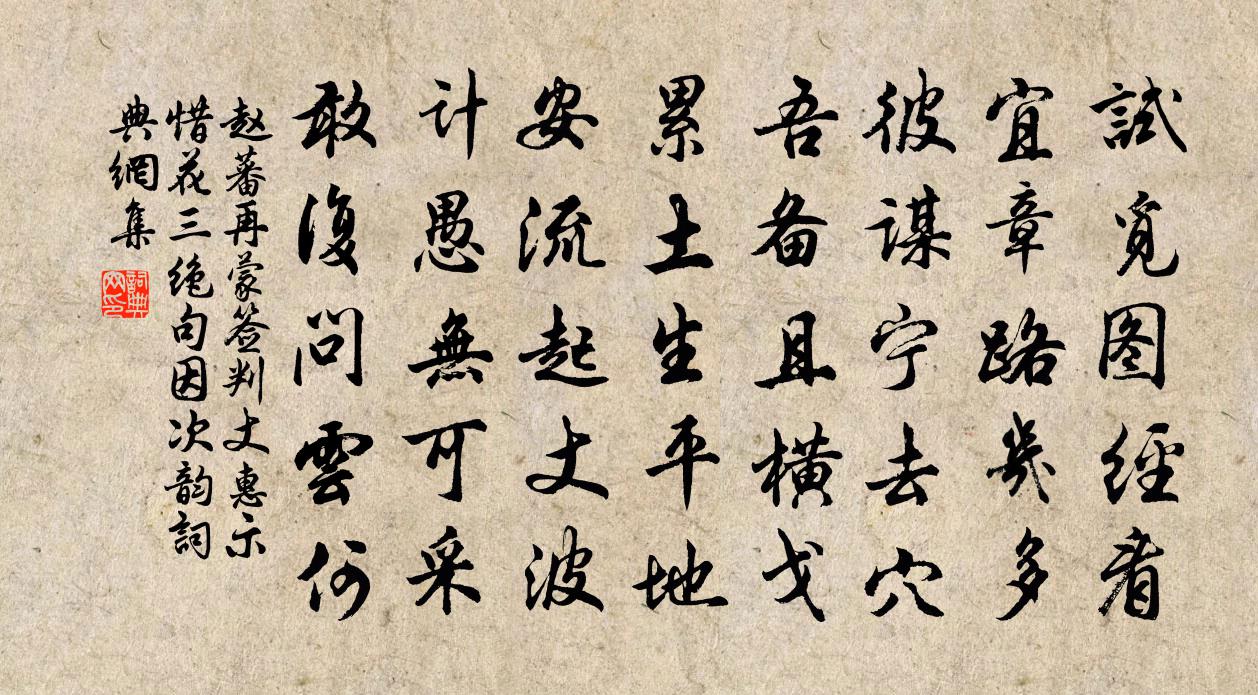 試覓图經看
宜章路幾多
彼謀宁去穴
吾备且橫戈
累土生平地
安流起丈波
计愚無可采
敢復問雲何
赵蕃再蒙签判丈惠示
惜花三绝句因次韵詞
典網集
詞典
网印